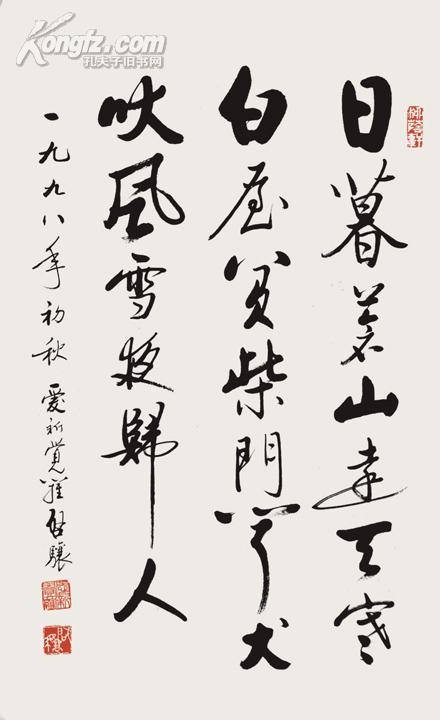 日暮蒼山遠天寒
白屋貧柴門聞犬
吠風雪夜歸人
一九九八年初秋 愛新覺羅啟驤
Kongfz.com
孔夫子旧书网